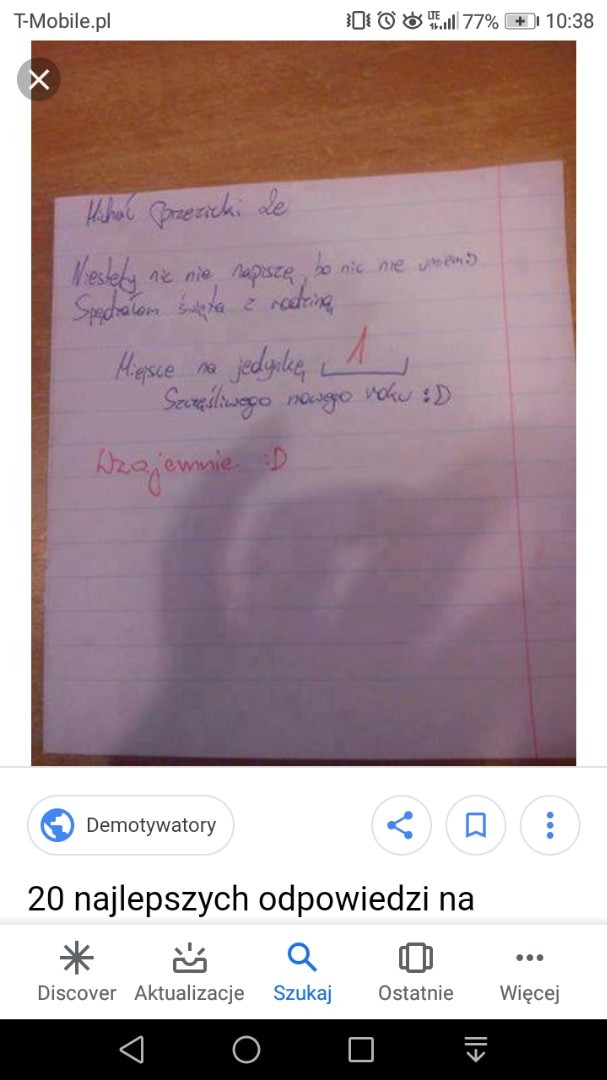 T-Mobile.pl LTE 77% 10:38
Michał Brzezicki 2e
Niestety nic nie napiszę, bo nic nie umiem :)
Spędzałem święta z rodziną
Miejsce na jedynkę 1
Szczęśliwego nowego roku :D
Wzajemnie :D
Demotywatory
20 najlepszych odpowiedzi na
Discover Aktualizacje Szukaj Ostatnie Więcej